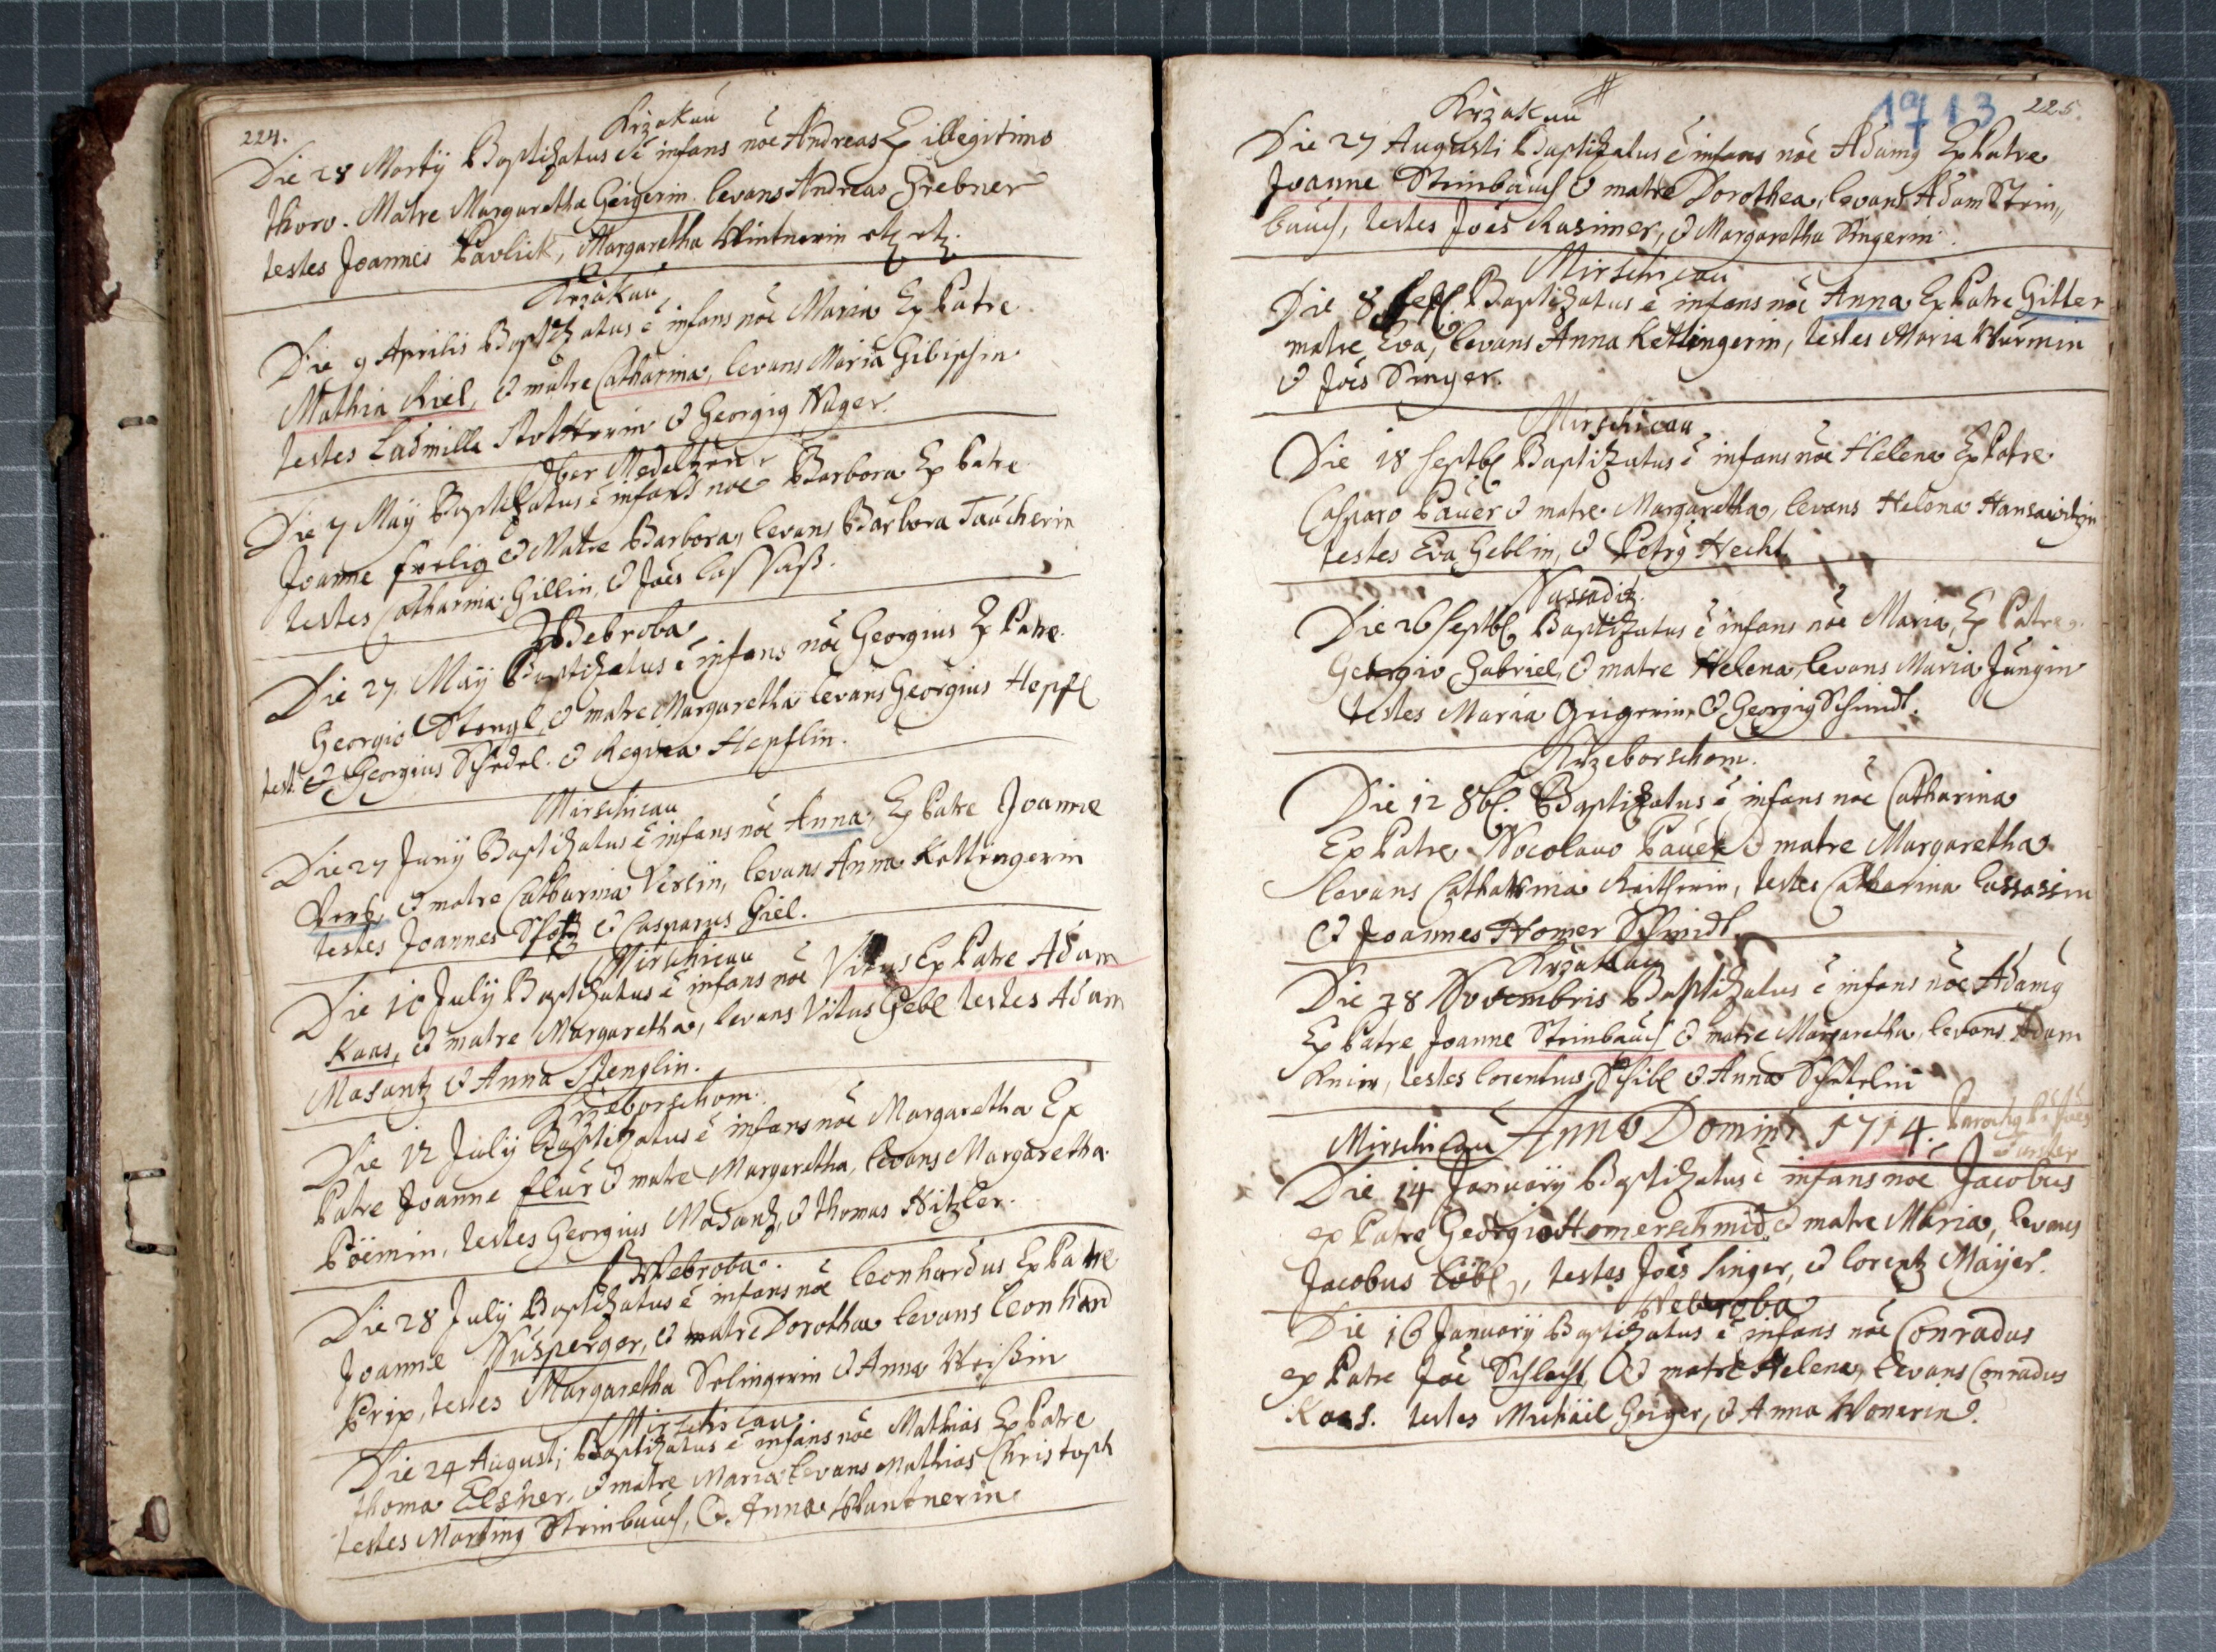 224.
Križakau
Die 28 Martÿ Baptizatus ē infans nōē Andreas Ex illegitimo
thoro. Matre Margaretha Geigerin. levans Andreas Grebner
testes Joannes Pavlick, Margaretha Wintnerin etz etz.
Križakau
Die 9 Aprilis Baptizatus ē infans nōē Maria Ex Patre
Mathia Riel, & matre Catharina, levans Maria
testes Ladmilla & Georgig Nager.
Ober Medeltzen
Die 7 Maÿ Baptizatus ē infans nōē Barbora Ex Patre
Joanne frelig & Matre Barbora, levans Barbora Taucherin
testes Catharina Gillin, & Joēs
Webroba
Die 27. Maÿ Baptizatus ē infans nōē Georgius Ex Patre
Georgio Stengl, & matre Margaretha levans Georgius Hepfl
test. & Georgius Schedel. & Regina Hepflin.
Mirschicau
Die 27 Junÿ Baptizatus ē infans nōē Anna, Ex Patre Joanne
& matre Catharina levans Anna Kettingerin
testes Joannes & Casparus Giel.
Mirschicau
Die 10 Julÿ Baptizatus ē infans nōē Vitus Ex Patre Adam
Kaas, & matre Margaretha, levans Vitus Gebl testes Adam
Masantz & Anna Stenglin.
Krzeborschom.
Die 12 Julÿ Baptizatus ē infans nōē Margaretha Ex
Patre Joanne flur & matre Margaretha, levans Margaretha
Pöemin, testes Georgius Masantz, & thomas Nitzler.
Webroba.
Die 28 Julÿ Baptizatus ē infans nōē Leonhardus Ex Patre
Joanne Nusperger, & matre Dorothae levans Leonhard
Prix, testes Margaretha Selingerin & Anna Weißin
Mirschicau
Die 24 Augusti Baptizatus ē infans nōē Mathias Ex Patre
thoma Elsner, & matre Maria levans Mathias Christoph
testes Marting Steinbauch, & Anna Wantnerin
1713 225.
Križakau
Die 27 Augusti Baptizatus ē infans nōē Adamg Ex Patre
Joanne Steinbauch & matre Dorothea, levans Adam Stein,,
bauch, testes Joēs Kasimer, & Margaretha Singerin.
Mirschicau
Die 8 Baptizatus ē infans nōē Anna Ex Patre Gitter
matre Eva, levans Anna Ketlingerin, testes Maria Wurmin
& Joēs Singer.
Mirschicau
Die 18 Septbl Baptizatus ē infans nōē Helena Ex Patre
Casparo Pauer & matre Margaretha, levans Helena
testes Eva Geblin, & Petrg Hecht
Nassadiz.
Die 26 Septbl Baptizatus ē infans nōē Maria, Ex Patre
Georgio Gabriel, & matre Helena, levans Maria Jungin
testes Maria Geigerin, & Georgig Schmidt.
Krzeborschom.
Die 12 8bl. Baptizatus ē infans nōē Catharina
Ex Patre Nocolauo Pauer & matre Margaretha
levans Catharina testes Catharina Lassasin
& Joannes Homer Schmidt.
Križakau
Die 28 Novembris Baptizatus ē infans nōē Adamg
Ex Patre Joanne Steinbauch & matre Margaretha, levans Adam
testes Lorentius Schibl & Anna
Mirschicau Anno Domini 1714.
Die 14 Januarÿ Baptizatus ē infans nōē Jacobus
ex Patre Georgio Homerschmid & matre Maria, levans
Jacobus Löbl, testes Joēs Singer, & Lorentz Maÿer.
Webroba
Die 16 Januarÿ Baptizatus ē infans nōē Conradus
ex Patre Joē Schlecht & matre Helena, levans Conradus
Kaas. testes Michael Geiger, & Anna Wonerin.